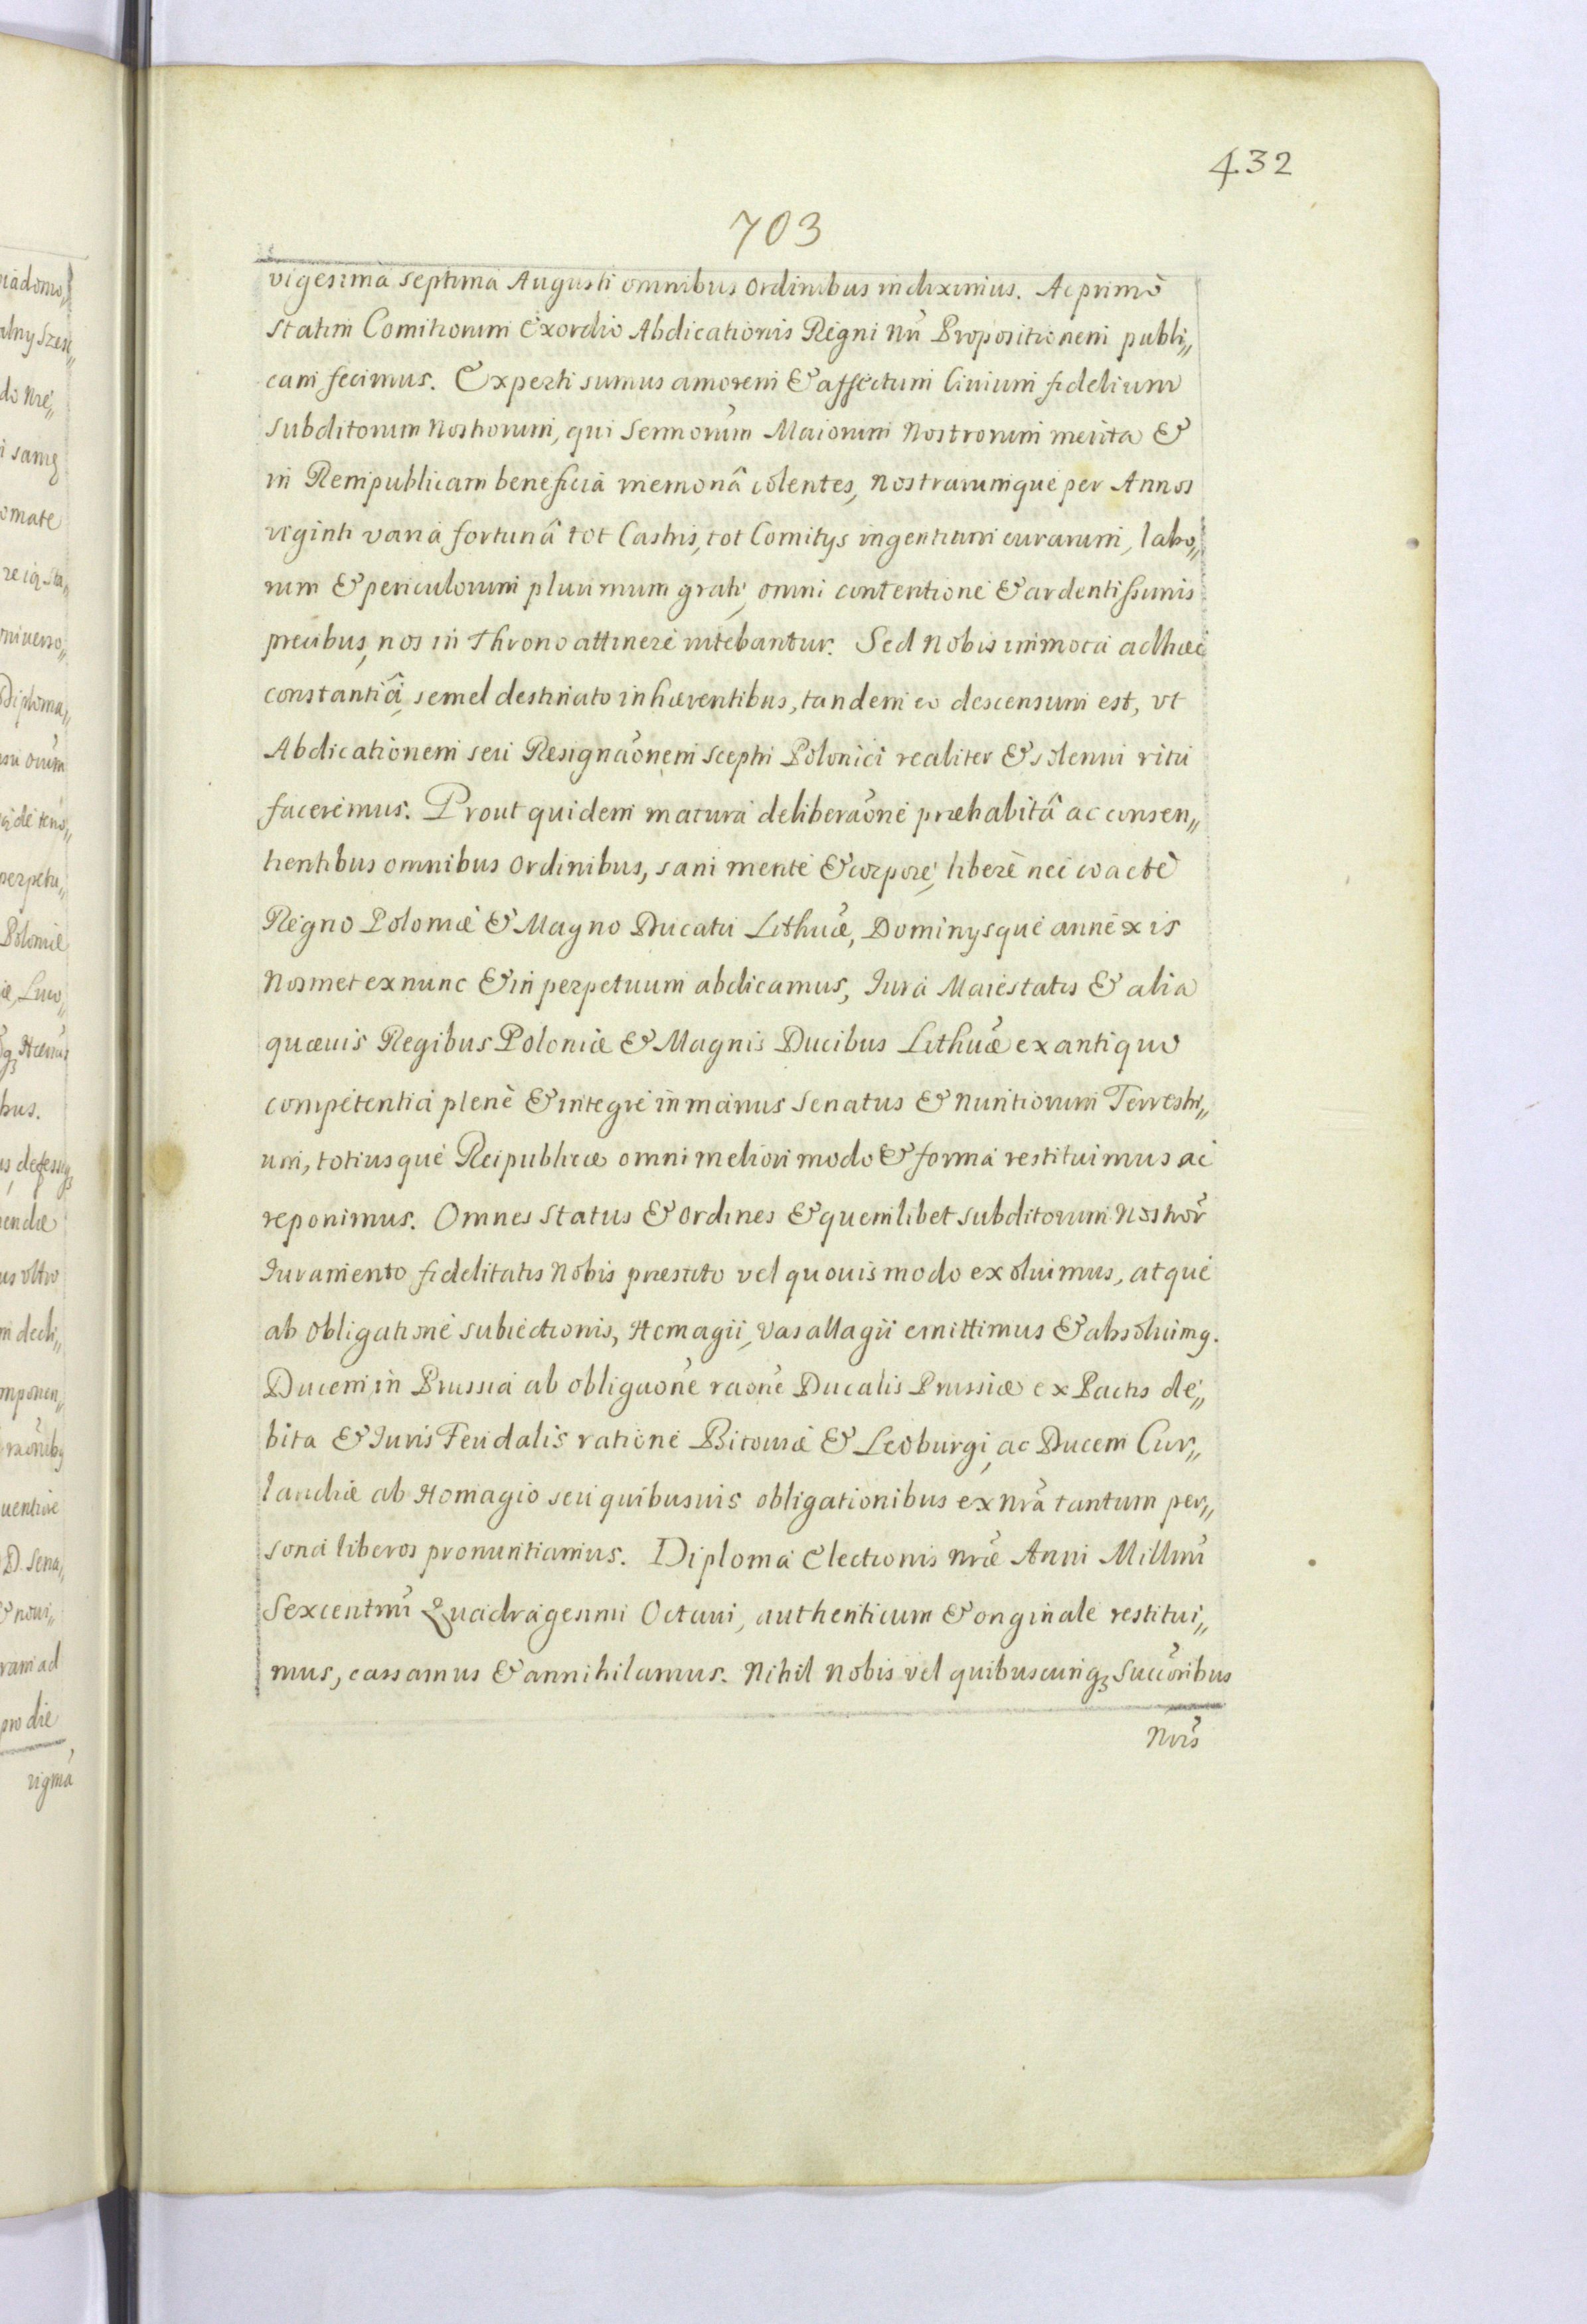 432
703
vigesima septima Augusti omnibus Ordinibus indiximus. Ac primò
statim Comitiorum Exordio Abdicationis Regni nri͂ Propositionem publi„
cam fecimus. Experti sumus amorem & affectum Civium fidelium
subditorum Nostrorum, qui Sermorum͂ Maiorum Nostrorum merita &
in Rempublicam beneficia memoriâ colentes, Nostrarumque per Annos
viginti varia fortunâ tot Castris, tot Comitys ingentium curarum, labo„
rum & periculorum plurimum grati, omni contentione & ardentissimis
precibus, nos in Throno attinere nitebantur. Sed Nobis immota adhuc
constantiâ, semel destinato inhærentibus, tandem eo descensum est, vt
Abdicationem seu Resignaõnem Sceptri Polonici realiter & solenni ritu
faceremus. Prout quidem matura deliberaõne præhabitâ ac consen„
tientibus omnibus Ordinibus, sani mente & corpore, liberè nec coactè
Regno Poloniæ & Magno Ducatu Lithuæ͂, Dominysque annexis
Nosmet ex nunc & in perpetuum abdicamus, Iura Maiestatis & alia
quævis Regibus Poloniæ & Magnis Ducibus Lithuæ͂ ex antiquo
competentia plenè & integre in manus Senatus & Nuntiorum Terrestri„
um, totiusque Reipublicæ omni meliori modo & forma restituimus ac
reponimus. Omnes Status & Ordines & quemlibet subditorum Nostror͂
Iuramento fidelitatis Nobis præstito vel quovis modo exoluimus, atque
ab Obligatione subiectionis, Homagii, Vasallagii emittimus & absoluimq.
Ducem in Prussia ab obligaõne raõne Ducalis Prussiæ ex Pactis de„
bita & Iuris Feudalis ratione Bitoviæ & Leoburgi, ac Ducem Cur„
landiæ ab Homagio seu quibusuis obligationibus ex nra͂ tantum per„
sona liberos pronuntiamus. Diploma Electionis nræ͂ Anni Millmi͂
Sexcentmi͂ Quadragesimi Octaui, authenticum & originale restitui„
mus, cassamus & annihilamus. Nihil Nobis vel quibuscunqꝫ Succõribus
Nris͂